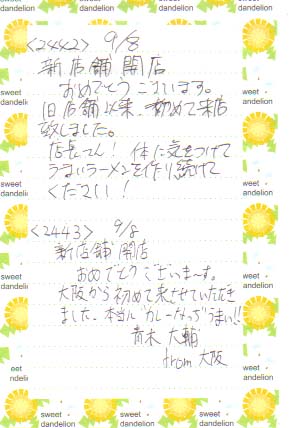 <2442> 9/8
新店舗 開店
おめでとうございます。
旧店舗以来、初めて来店
致しました。
店長さん! 体に気をつけて
うまいラーメンを作り続けて
ください!
<2443> 9/8
新店舗 開店
おめでとうございまーす。
大阪から初めて来させていただき
ました。本当に うまい!!
青木 大輔
from 大阪
sweet
dandelion